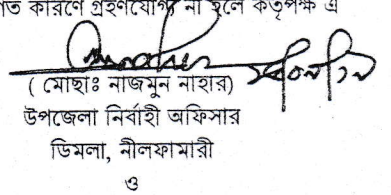 কারণে গ্রহণযোগ্য না হলে কর্তৃপক্ষ এ
( মোছাঃ নাজমুন নাহার)
উপজেলা নির্বাহী অফিসার
ডিমলা, নীলফামারী
ও